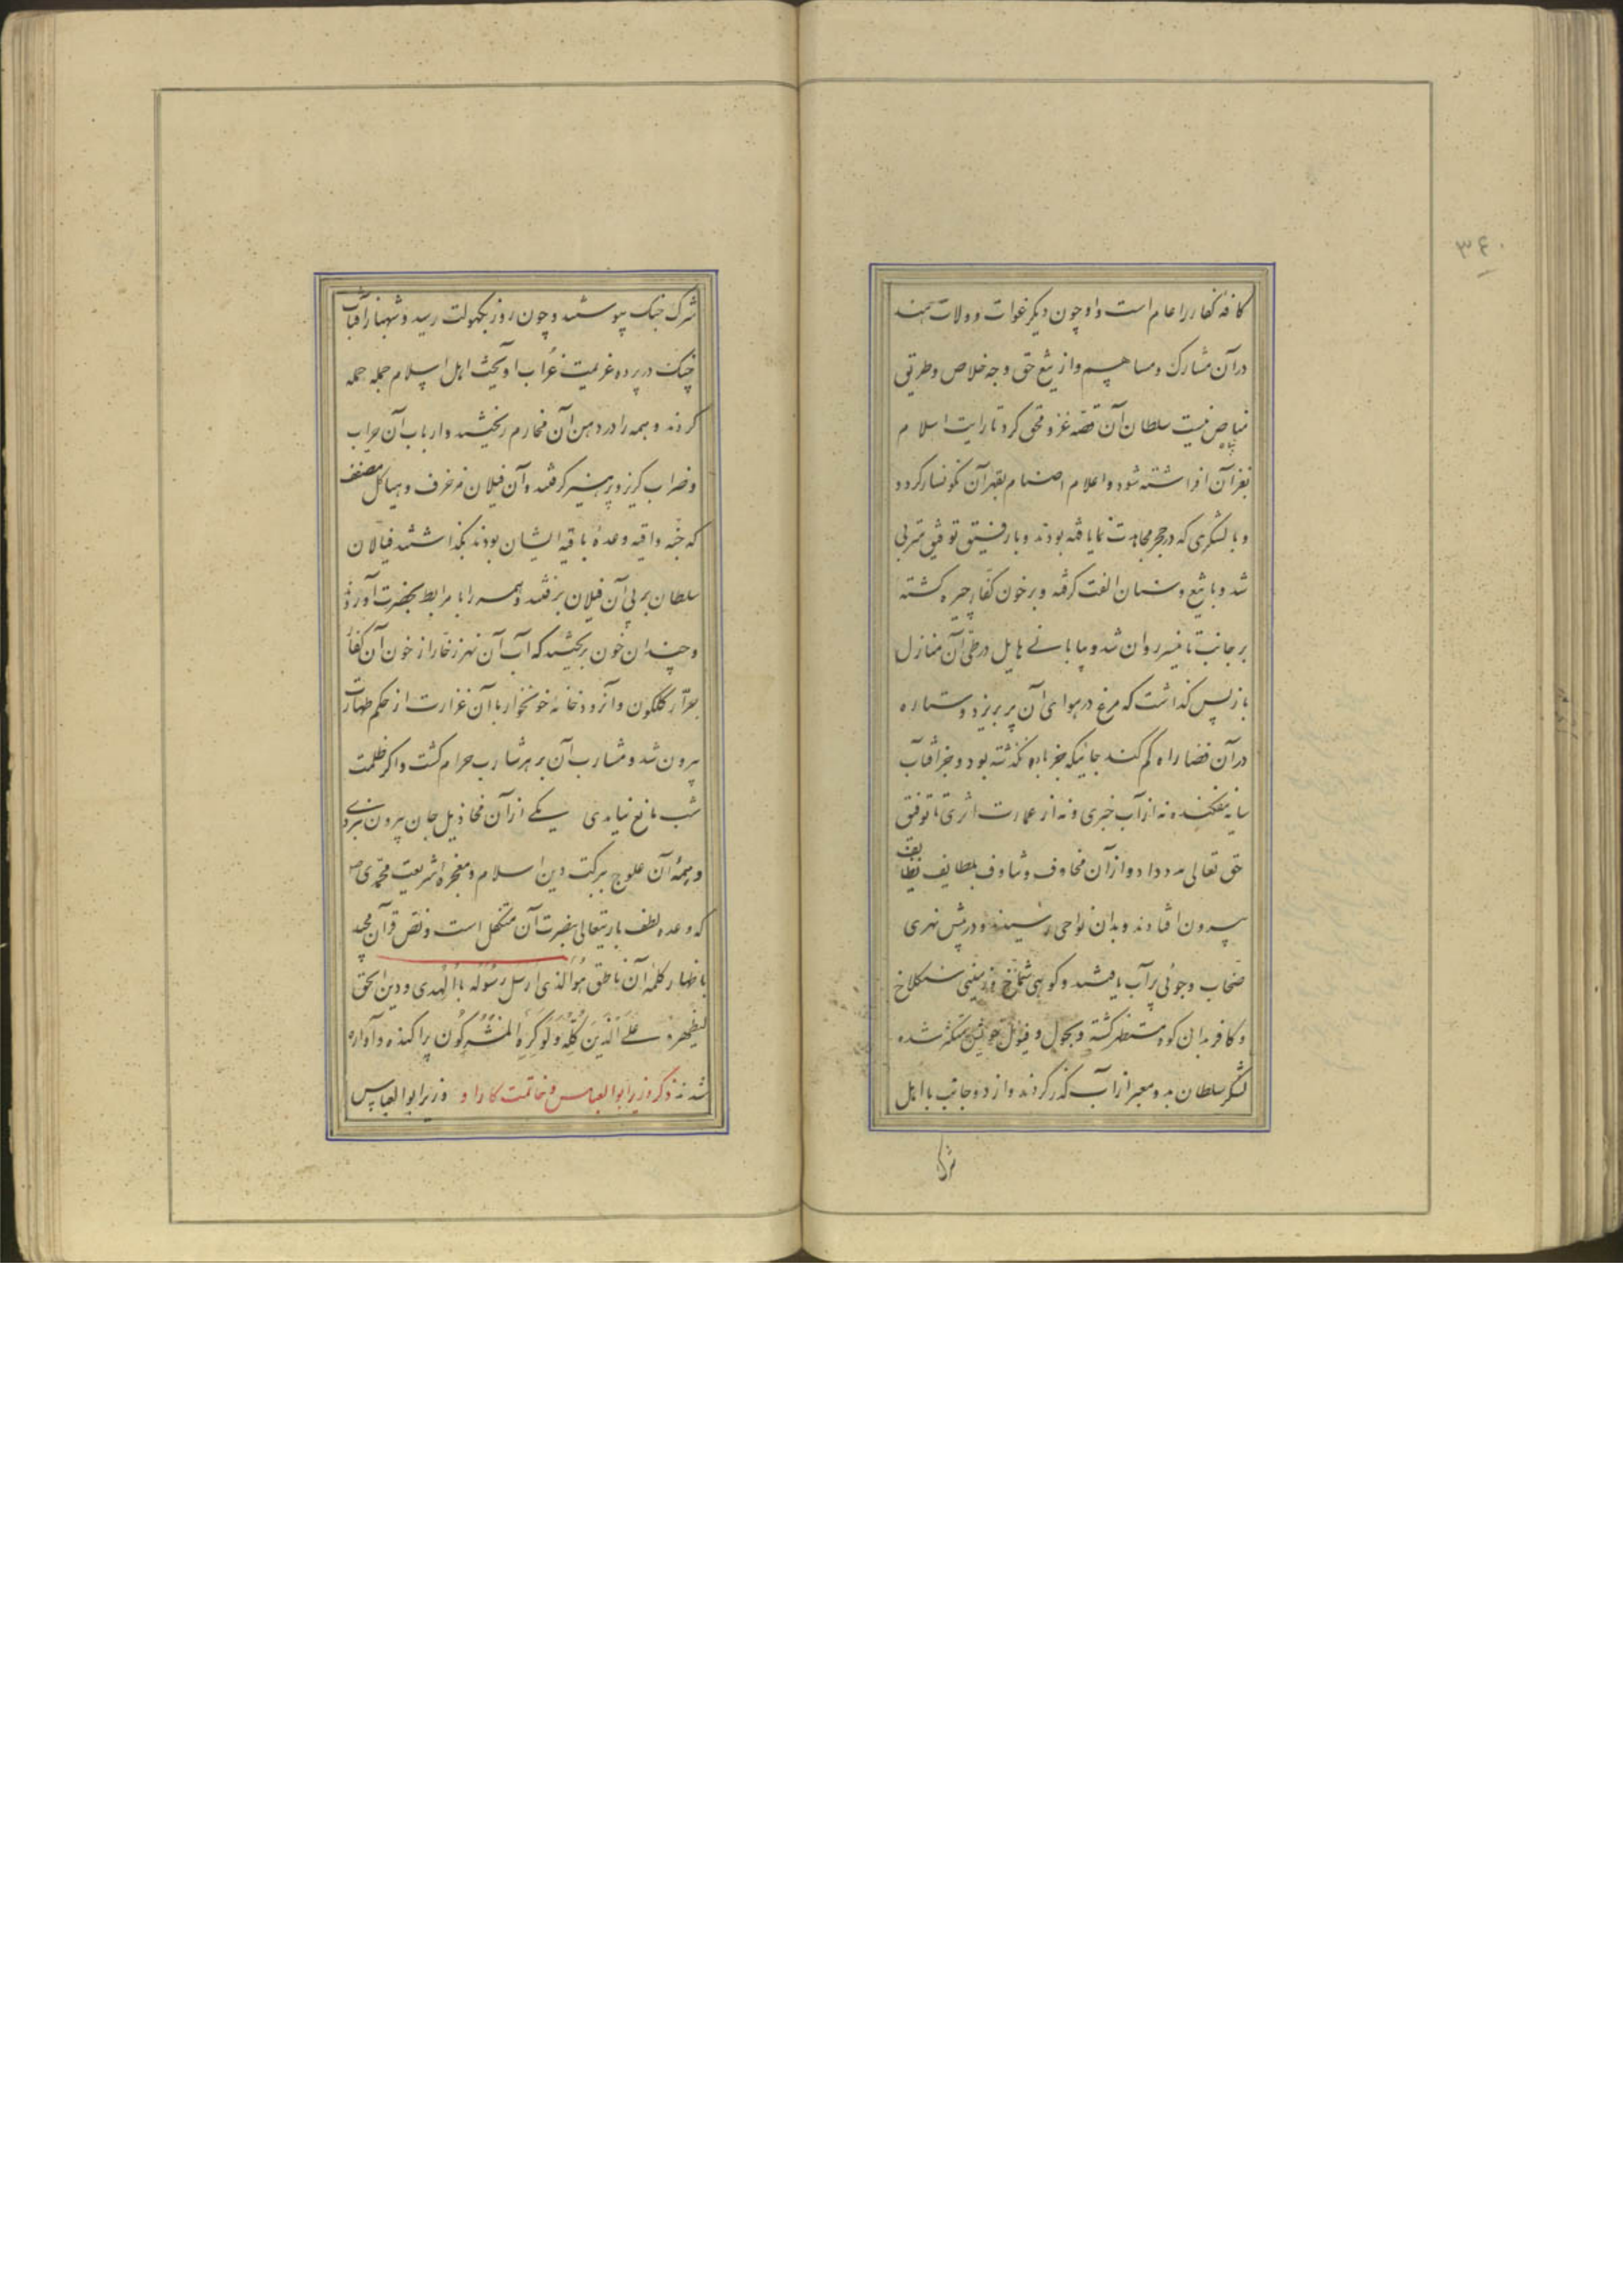 ۳۶۰
کافهٔ کفار را عام است و او چون دیگر غوات و ولات هند
در آن مشارک و مساهم و از تیغ حق وجه خلاص و طریق
مناص نیست سلطان آن قصد غزو محقق کرد تا رایت اسلام
بغزآن افراشته شود و اعلام اصنام بقهر آن نگونسار گردد
و با لشکری که در حجر مجاهدت نما یافته بودند و با رفیق توفیق متربی
شد و با تیغ و سنان الفت گرفته و بر خون کفار چیره گشته
بر جانب تانیسر روان شد و بیابانی هایل در طی آن منازل
باز پس گذاشت که مرغ در هوای آن پر بریزد و ستاره
در آن فضا راه گم کند جائیکه جز باد نگذشته بود و جز آفتاب
سایه نیفکنده نه از آب خبری و نه از عمارت اثری تا توفیق
حق تعالی مدد داد و از آن مخاوف و متاوف بلطایف نظایف
بیرون افتادند و بدان نواحی رسیدند و در پیش نهری
ضحاب و جوئی پر آب یافتند و کوهی شامخ و زمینی سنگلاخ
و کافر بدان کوه مستظهر گشته و بحول و فیول خویش متکثر شده
لشکر سلطان بدو معبر از آب گذر کردند و از دو جانب با اهل
شرک
شرک جنگ پیوستند و چون روز بکهولت رسید و شهباز آفتاب
چنگ در پرده عزیمت غراب آویخت اهل اسلام جمله حمله
کردند و همه را در دهن آن مخارم ریختند و ارباب آن حراب
و ضراب گریز و پرهیز گرفتند و آن فیلان مزخرف و هیاکل مصنف
که جنّه واقیه و عدهٔ باقیه ایشان بودند بگذاشتند فیالان
سلطان بر پی آن فیلان برفتند و همه را با مرابط بحضرت آوردند
و چندان خون بریختند که آب آن نهر زخار از خون آن کفار
جرّار گلگون و آن رودخانه خونخوار با آن غزارت از حکم طهارت
بیرون شد و مشارب آن بر هر شارب حرام گشت و اگر ظلمت
شب مانع نیامدی یکی از آن مخاذیل جان بیرون نبردی
و همهٔ آن علوج ببرکت دین اسلام و معجزه شریعت محمدی ص
که وعده لطف باریتعالی بنصرت آن متکفل است و نص قرآن مجید
باظهار کلمهٔ آن ناطق هُوَ الّذی ارسل رَسُولَه بالْهُدی و دین الحق
لیظهره علی الّذینَ کُلّه وَلَو کَرِهَ المُشْرِکُون پراکنده و آواره
شدند ذکر وزیر ابوالعباس و خاتمت کار او وزیر ابوالعباس